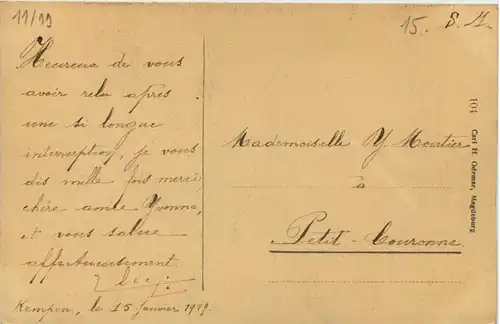 11/19
15. S. M.
Heureux de vous
avoir relu après
une si longue
interruption, je vous
dis mille fois merci
chère amie Yvonne,
et vous salue
affectueusement
Kempen, le 15 Janvier 1919.
Mademoiselle Y Moutier
à
Petit-Couronne
104 Carl H. Odemar, Magdeburg